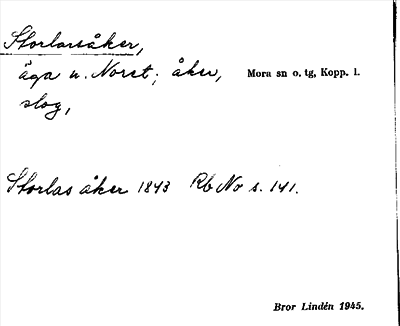 Storlasåker,
äga u. Noret; åker, Mora sn o. tg, Kopp. l.
slog,
Storlas åker 1843 Rb No s. 141.
Bror Lindén 1945.